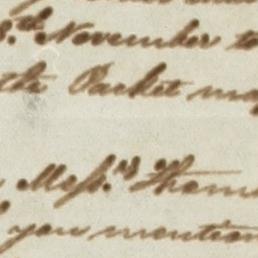 8.th November to
the Packet may
Mess.rs Thom
you mention